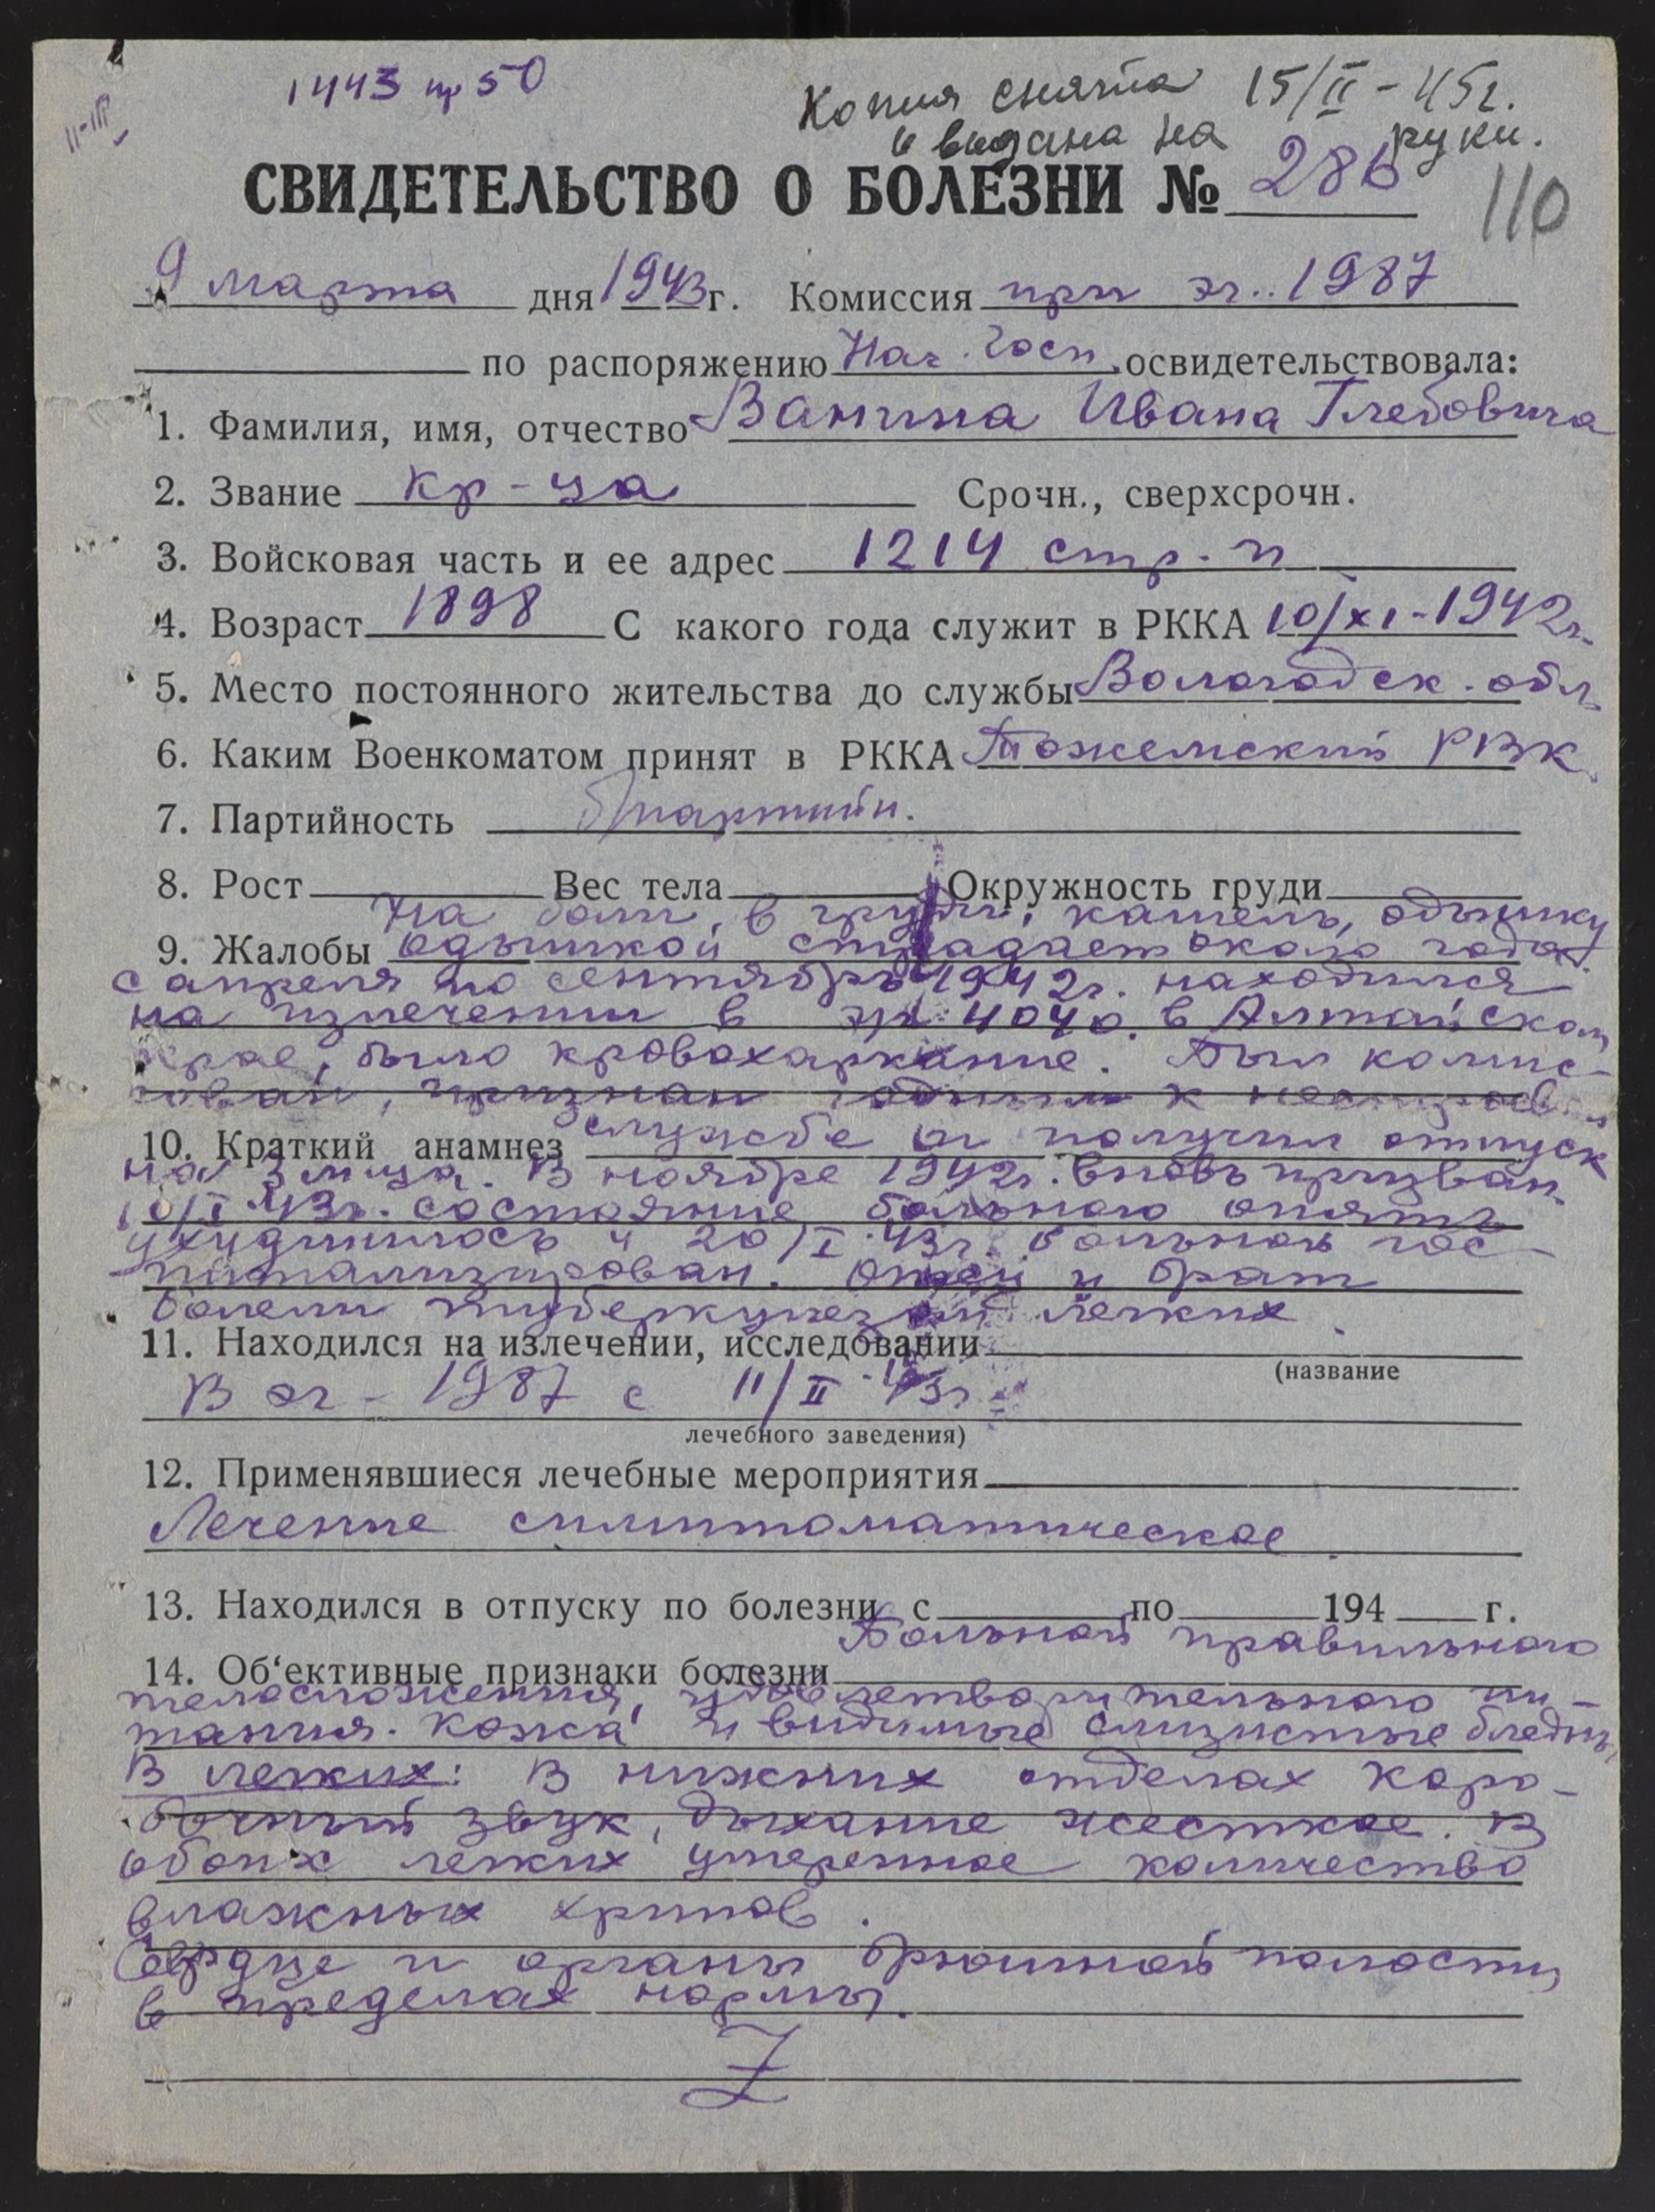 1443 пр 50
Копия снята 15/II-45г.
и выдана на руки.
II-III
СВИДЕТЕЛЬСТВО О БОЛЕЗНИ № 286
110
9 марта дня 1943 г. Комиссия при эг.. 1987
по распоряжению Нач. Госп. освидетельствовала:
1. Фамилия, имя, отчество Ванина Ивана Глебовича
2. Звание кр-ца Срочн., сверхсрочн.
3. Войсковая часть и ее адрес 1214 стр. п
4. Возраст 1898 С какого года служит в РККА 10/XI-1942г.
5. Место постоянного жительства до службы Вологодск. обл.
6. Каким Военкоматом принят в РККА РВК.
7. Партийность б/партийн.
8. Рост Вес тела Окружность груди
На боли в груди, кашель, одышку
9. Жалобы одышкой страдает около года.
с апреля по сентябрь 1942г. находился
на излечении в эг 4040 в Алтайском
крае, было кровохаркание. Был комис-
сован, признан годным к нестроев
10. Краткий анамнез службе и получил отпуск
на 3 м-ца. В ноябре 1942г. вновь призван.
10/I-43г. состояние больного опять
ухудшилось и 20/I-43г. больной гос-
питализирован. Отец и брат
болели туберкулезом легких.
11. Находился на излечении, исследовании
(название
В эг-1987 с 11/II-43г.
лечебного заведения)
12. Применявшиеся лечебные мероприятия
Лечение симптоматическое.
13. Находился в отпуску по болезни с по 194 г.
Больной правильного
14. Об‘ективные признаки болезни
телосложения, удовлетворительного пи-
тания. Кожа и видимые слизистые бледны.
В легких: В нижних отделах коро-
бочный звук, дыхание жесткое. В
обоих легких умеренное количество
влажных хрипов.
Сердце и органы брюшной полости
в пределах нормы.
Z